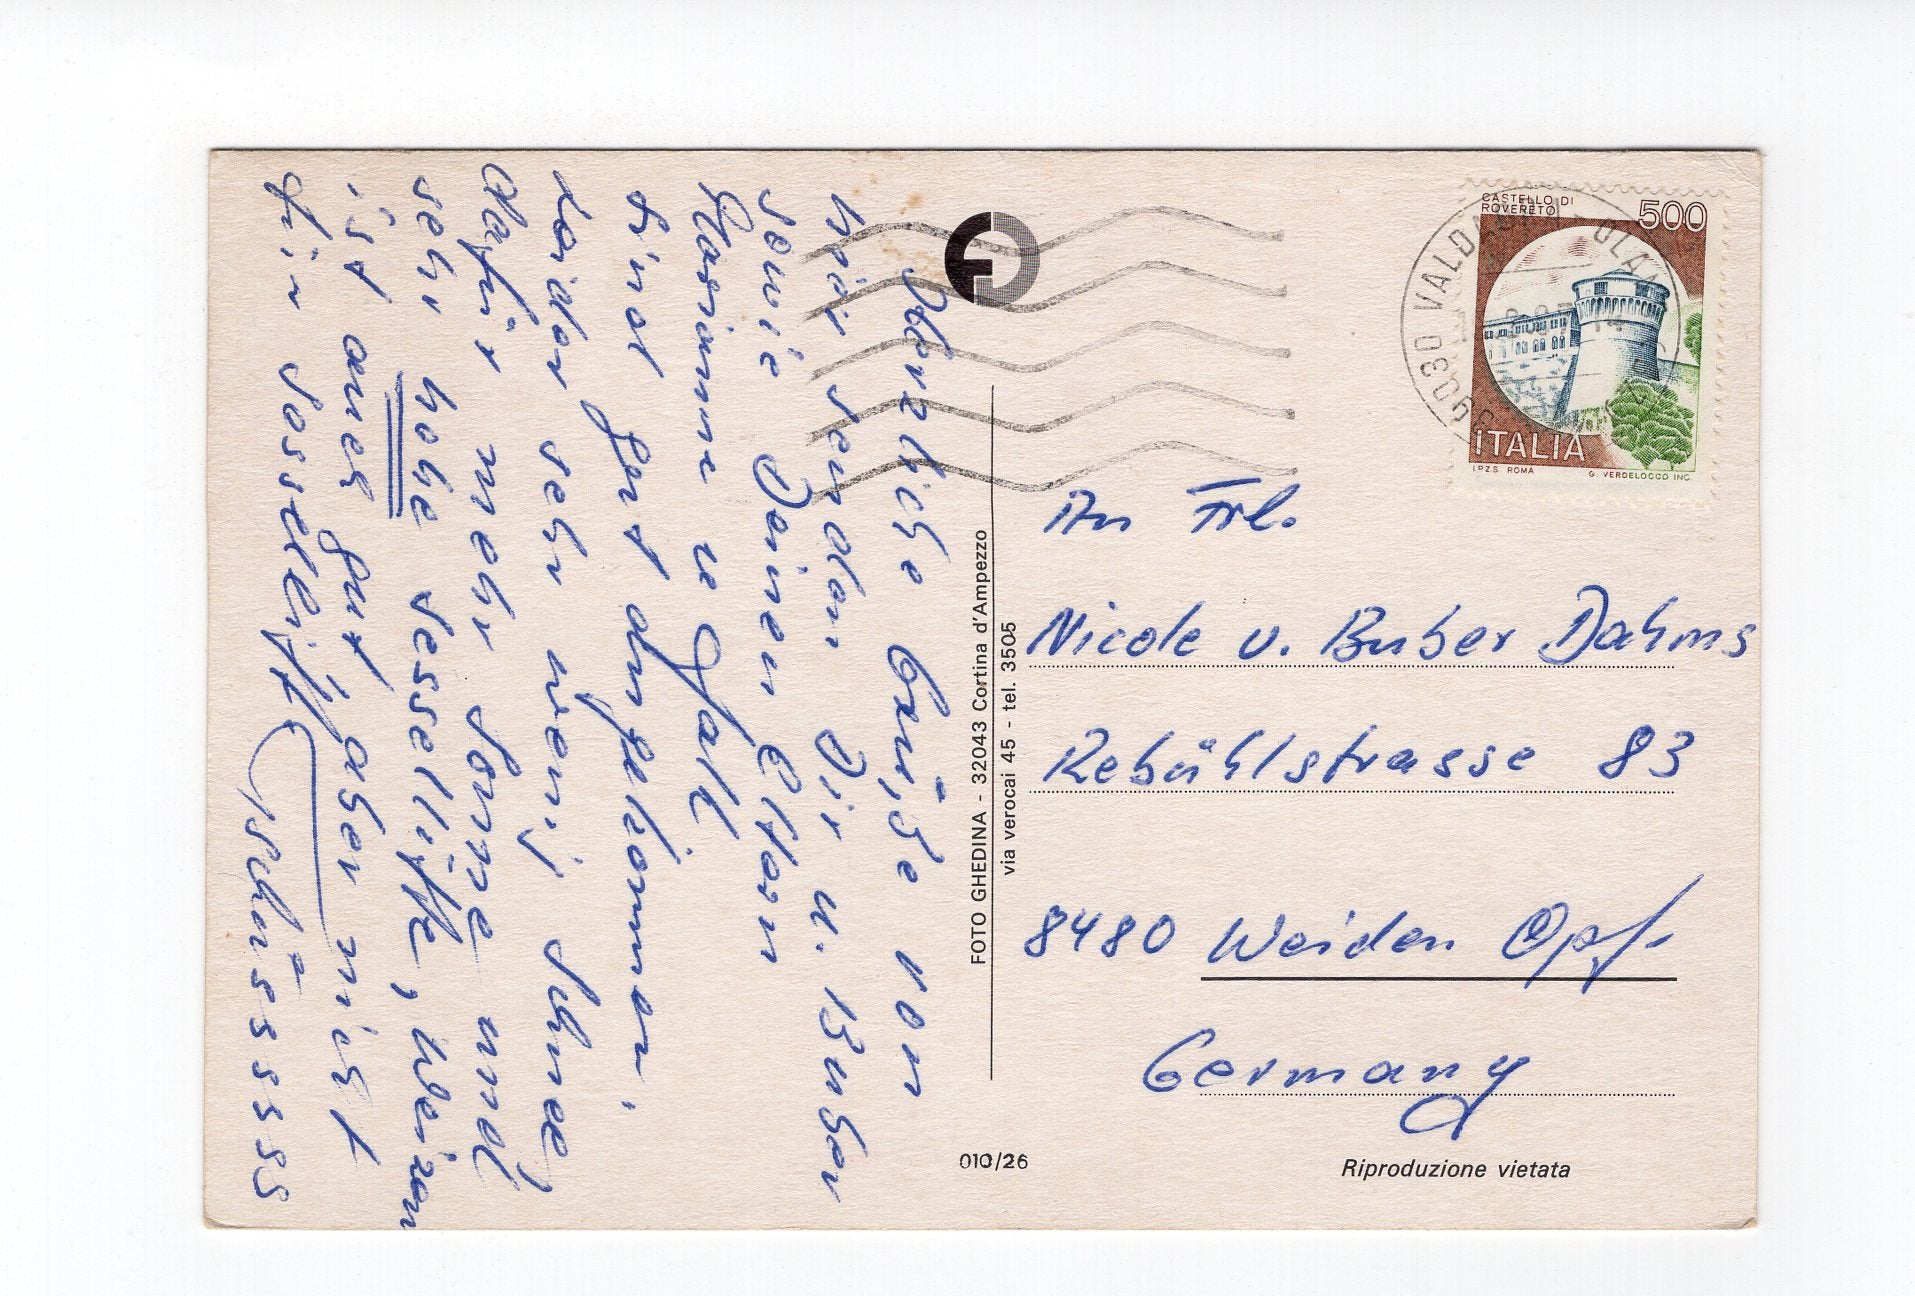 Herzliche Grüße von
hier senden Dir u. Buber
sowie Deinen Eltern
Marianne u
sind gut angekommen.
Leider sehr wenig Schnee,
dafür mehr Sonne und
sehr hohe Sessellifte, Weizen
ist auch gut, aber nicht
für Sessellift
Tschüsssssss
FOTO GHEDINA - 32043 Cortina d'Ampezzo
via verocai 45 - tel. 3505
CASTELLO DI
ROVERETO
500
ITALIA
I.P.Z.S. ROMA
G. VERDELOCCO INC.
39030 VALDAORA
An Frl.
Nicole u. Buber Dahms
Rebühlstrasse 83
8480 Weiden Opf.
Germany
010/26
Riproduzione vietata